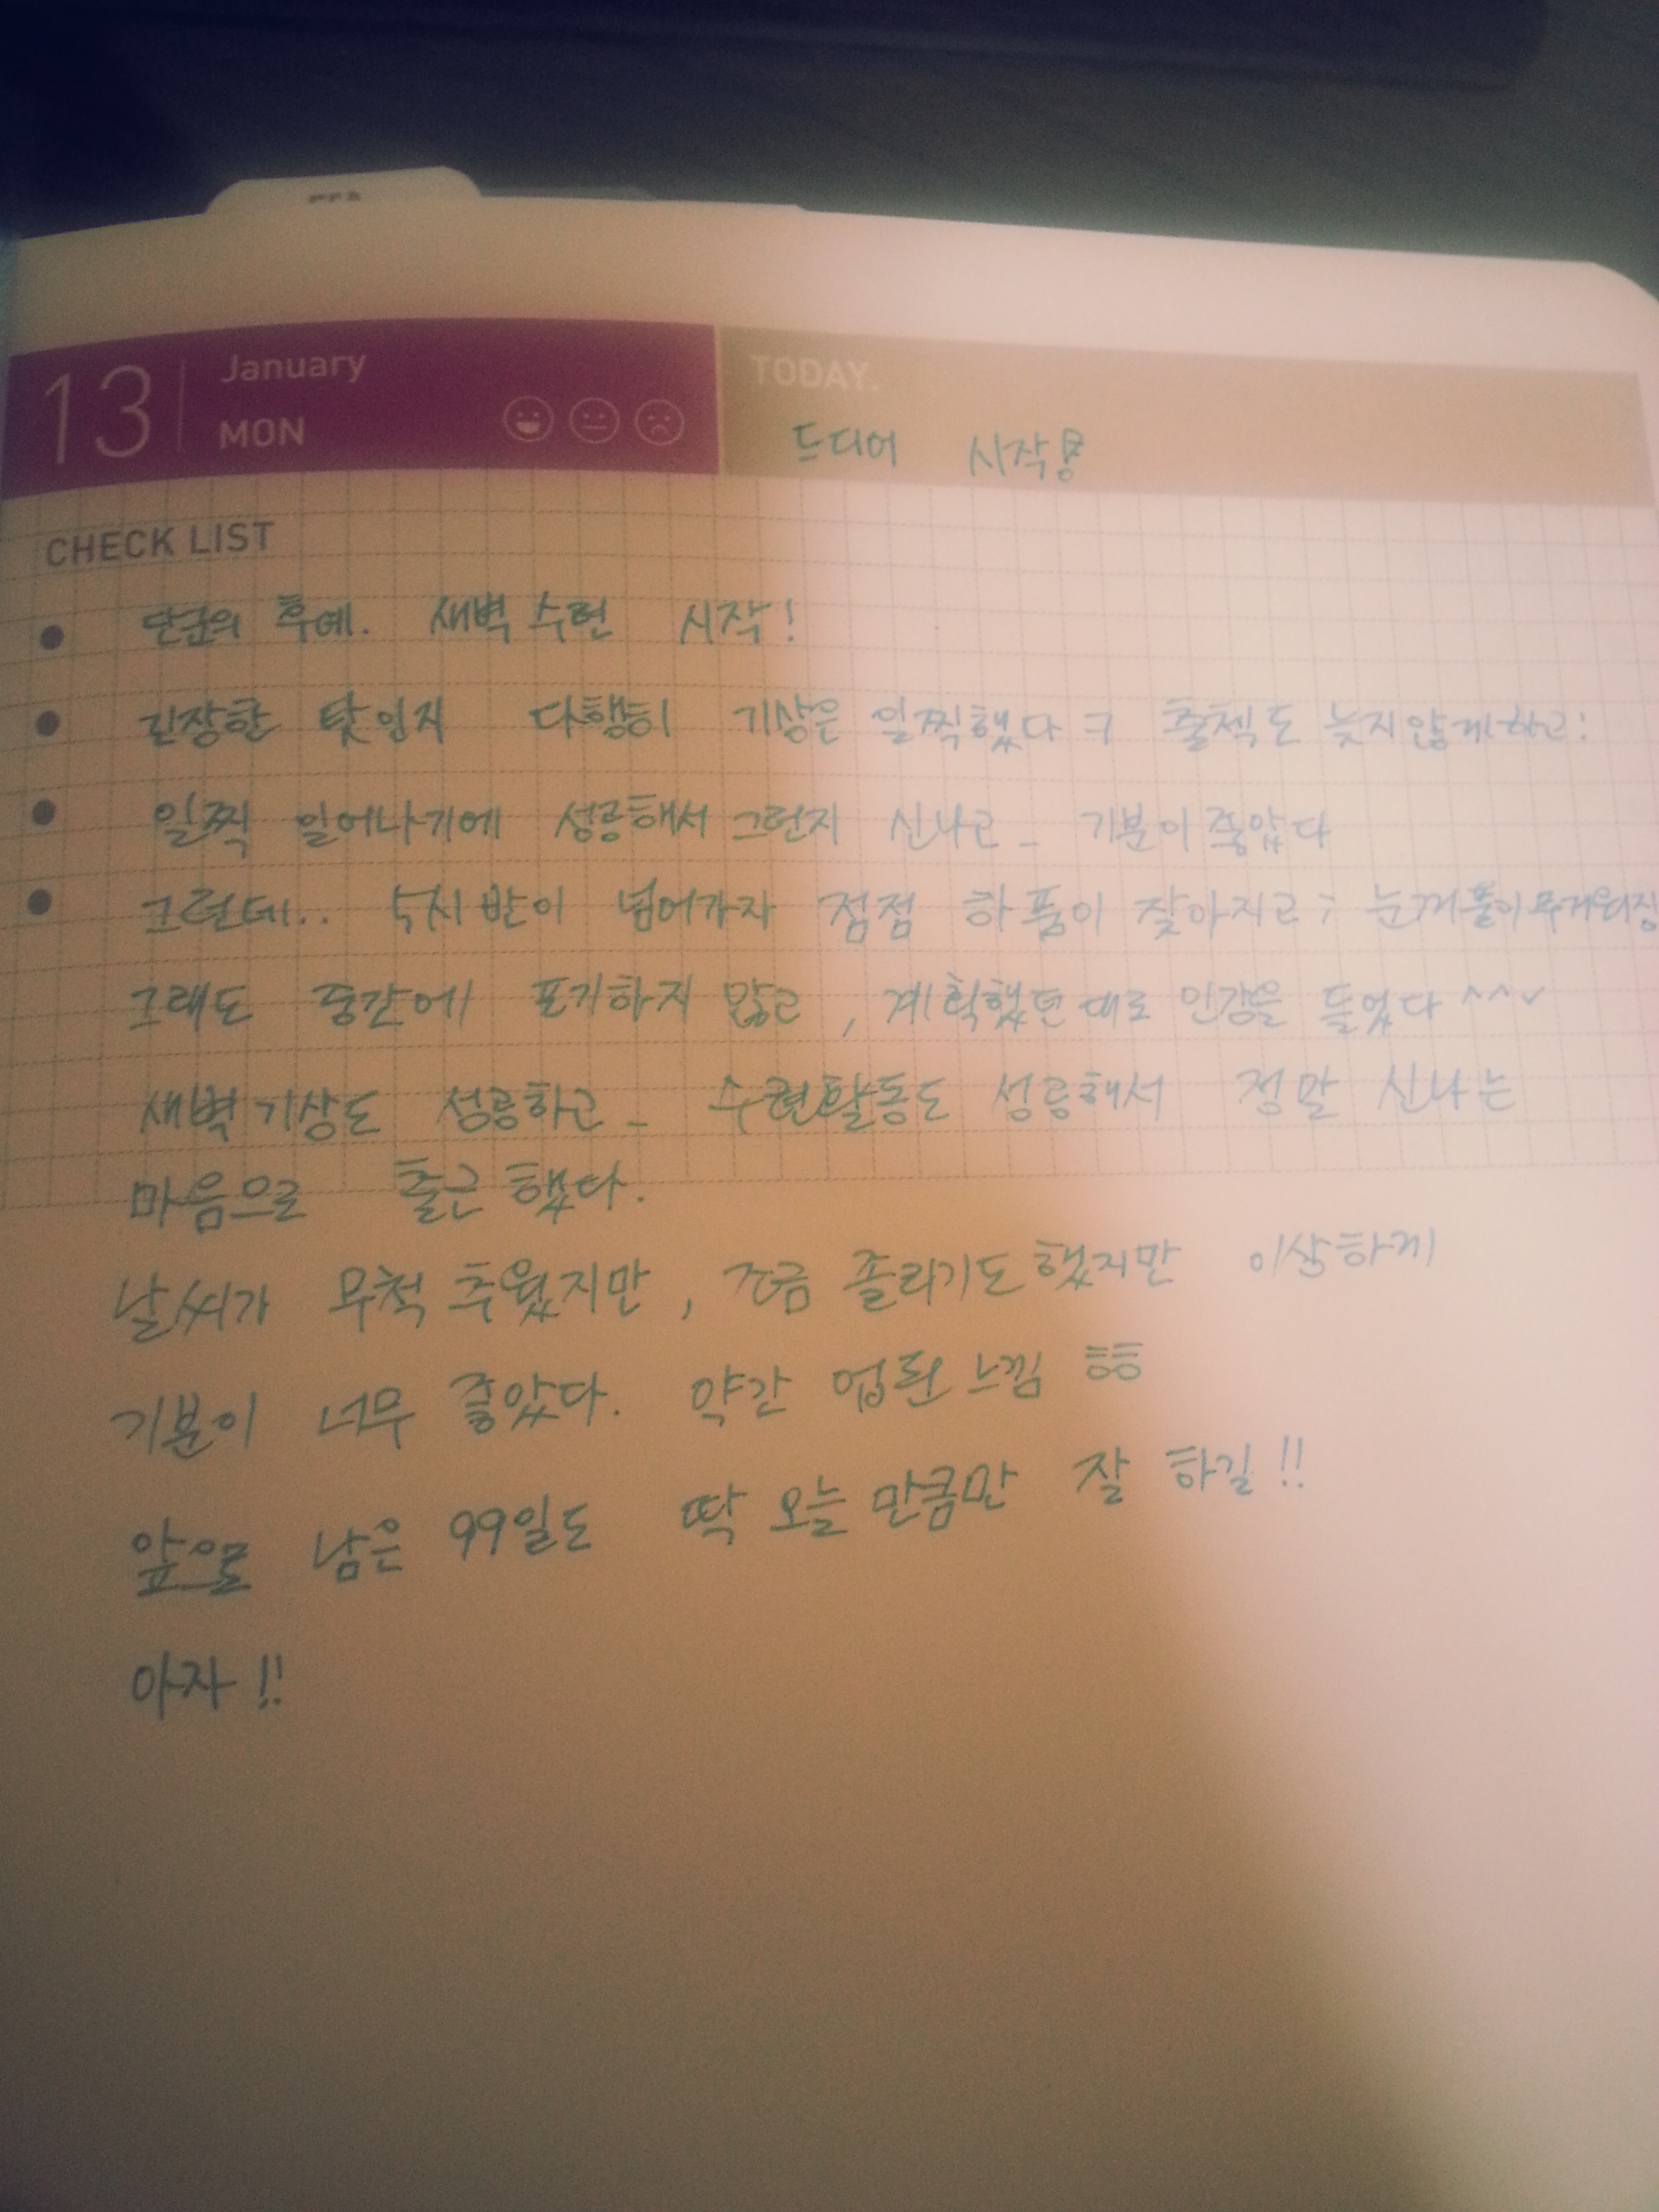 13 January
MON
TODAY.
드디어 시작!
CHECK LIST
단군의 후예. 새벽 수련 시작!
긴장한 탓인지 다행히 기상은 일찍했다 ㅋ 출첵도 늦지않게하고:
일찍 일어나기에 성공해서 그런지 신나고_ 기분이 좋았다
그런데.. 반이 넘어가자 점점 하품이 잦아지고; 눈꺼풀이 무거워짐
그래도 중간에 포기하지 않고, 계획했던대로 인강을 들었다 ^^
새벽기상도 성공하고_ 수련활동도 성공해서 정말 신나는
마음으로 출근했다.
날씨가 무척 추웠지만, 조금 졸리기도했지만 이상하게
기분이 너무 좋았다. 약간 업된 느낌 ㅎㅎ
앞으로 남은 99일도 딱 오늘만큼만 잘 하길!!
아자!!